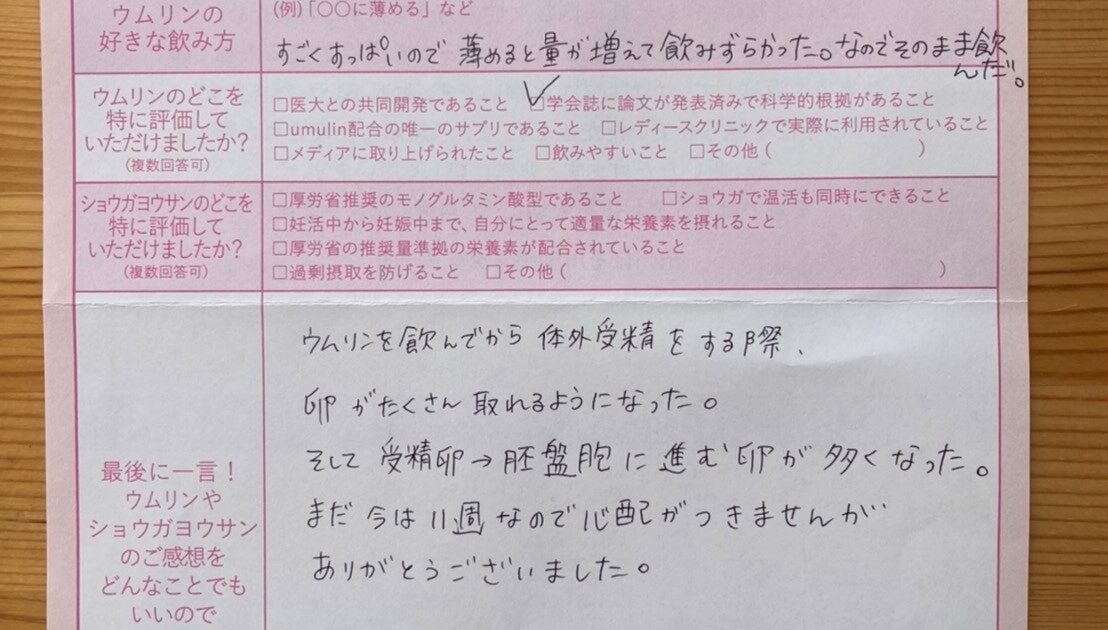 ウムリンの
好きな飲み方
(例)「〇〇に薄める」など
すごくすっぱいので 薄めると量が増えて飲みずらかった。なのでそのまま飲
んだ。
ウムリンのどこを
特に評価して
いただけましたか?
(複数回答可)
□医大との共同開発であること ☑学会誌に論文が発表済みで科学的根拠があること
□umulin配合の唯一のサプリであること □レディースクリニックで実際に利用されていること
□メディアに取り上げられたこと □飲みやすいこと □その他( )
ショウガヨウサンのどこを
特に評価して
いただけましたか?
(複数回答可)
□厚労省推奨のモノグルタミン酸型であること □ショウガで温活も同時にできること
□妊活中から妊娠中まで、自分にとって適量な栄養素を摂れること
□厚労省の推奨量準拠の栄養素が配合されていること
□過剰摂取を防げること □その他( )
最後に一言!
ウムリンや
ショウガヨウサン
のご感想を
どんなことでも
いいので
ウムリンを飲んでから 体外受精をする際、
卵がたくさん取れるようになった。
そして 受精卵→胚盤胞に進む卵が多くなった。
まだ今は11週なので心配がつきませんが…
ありがとうございました。